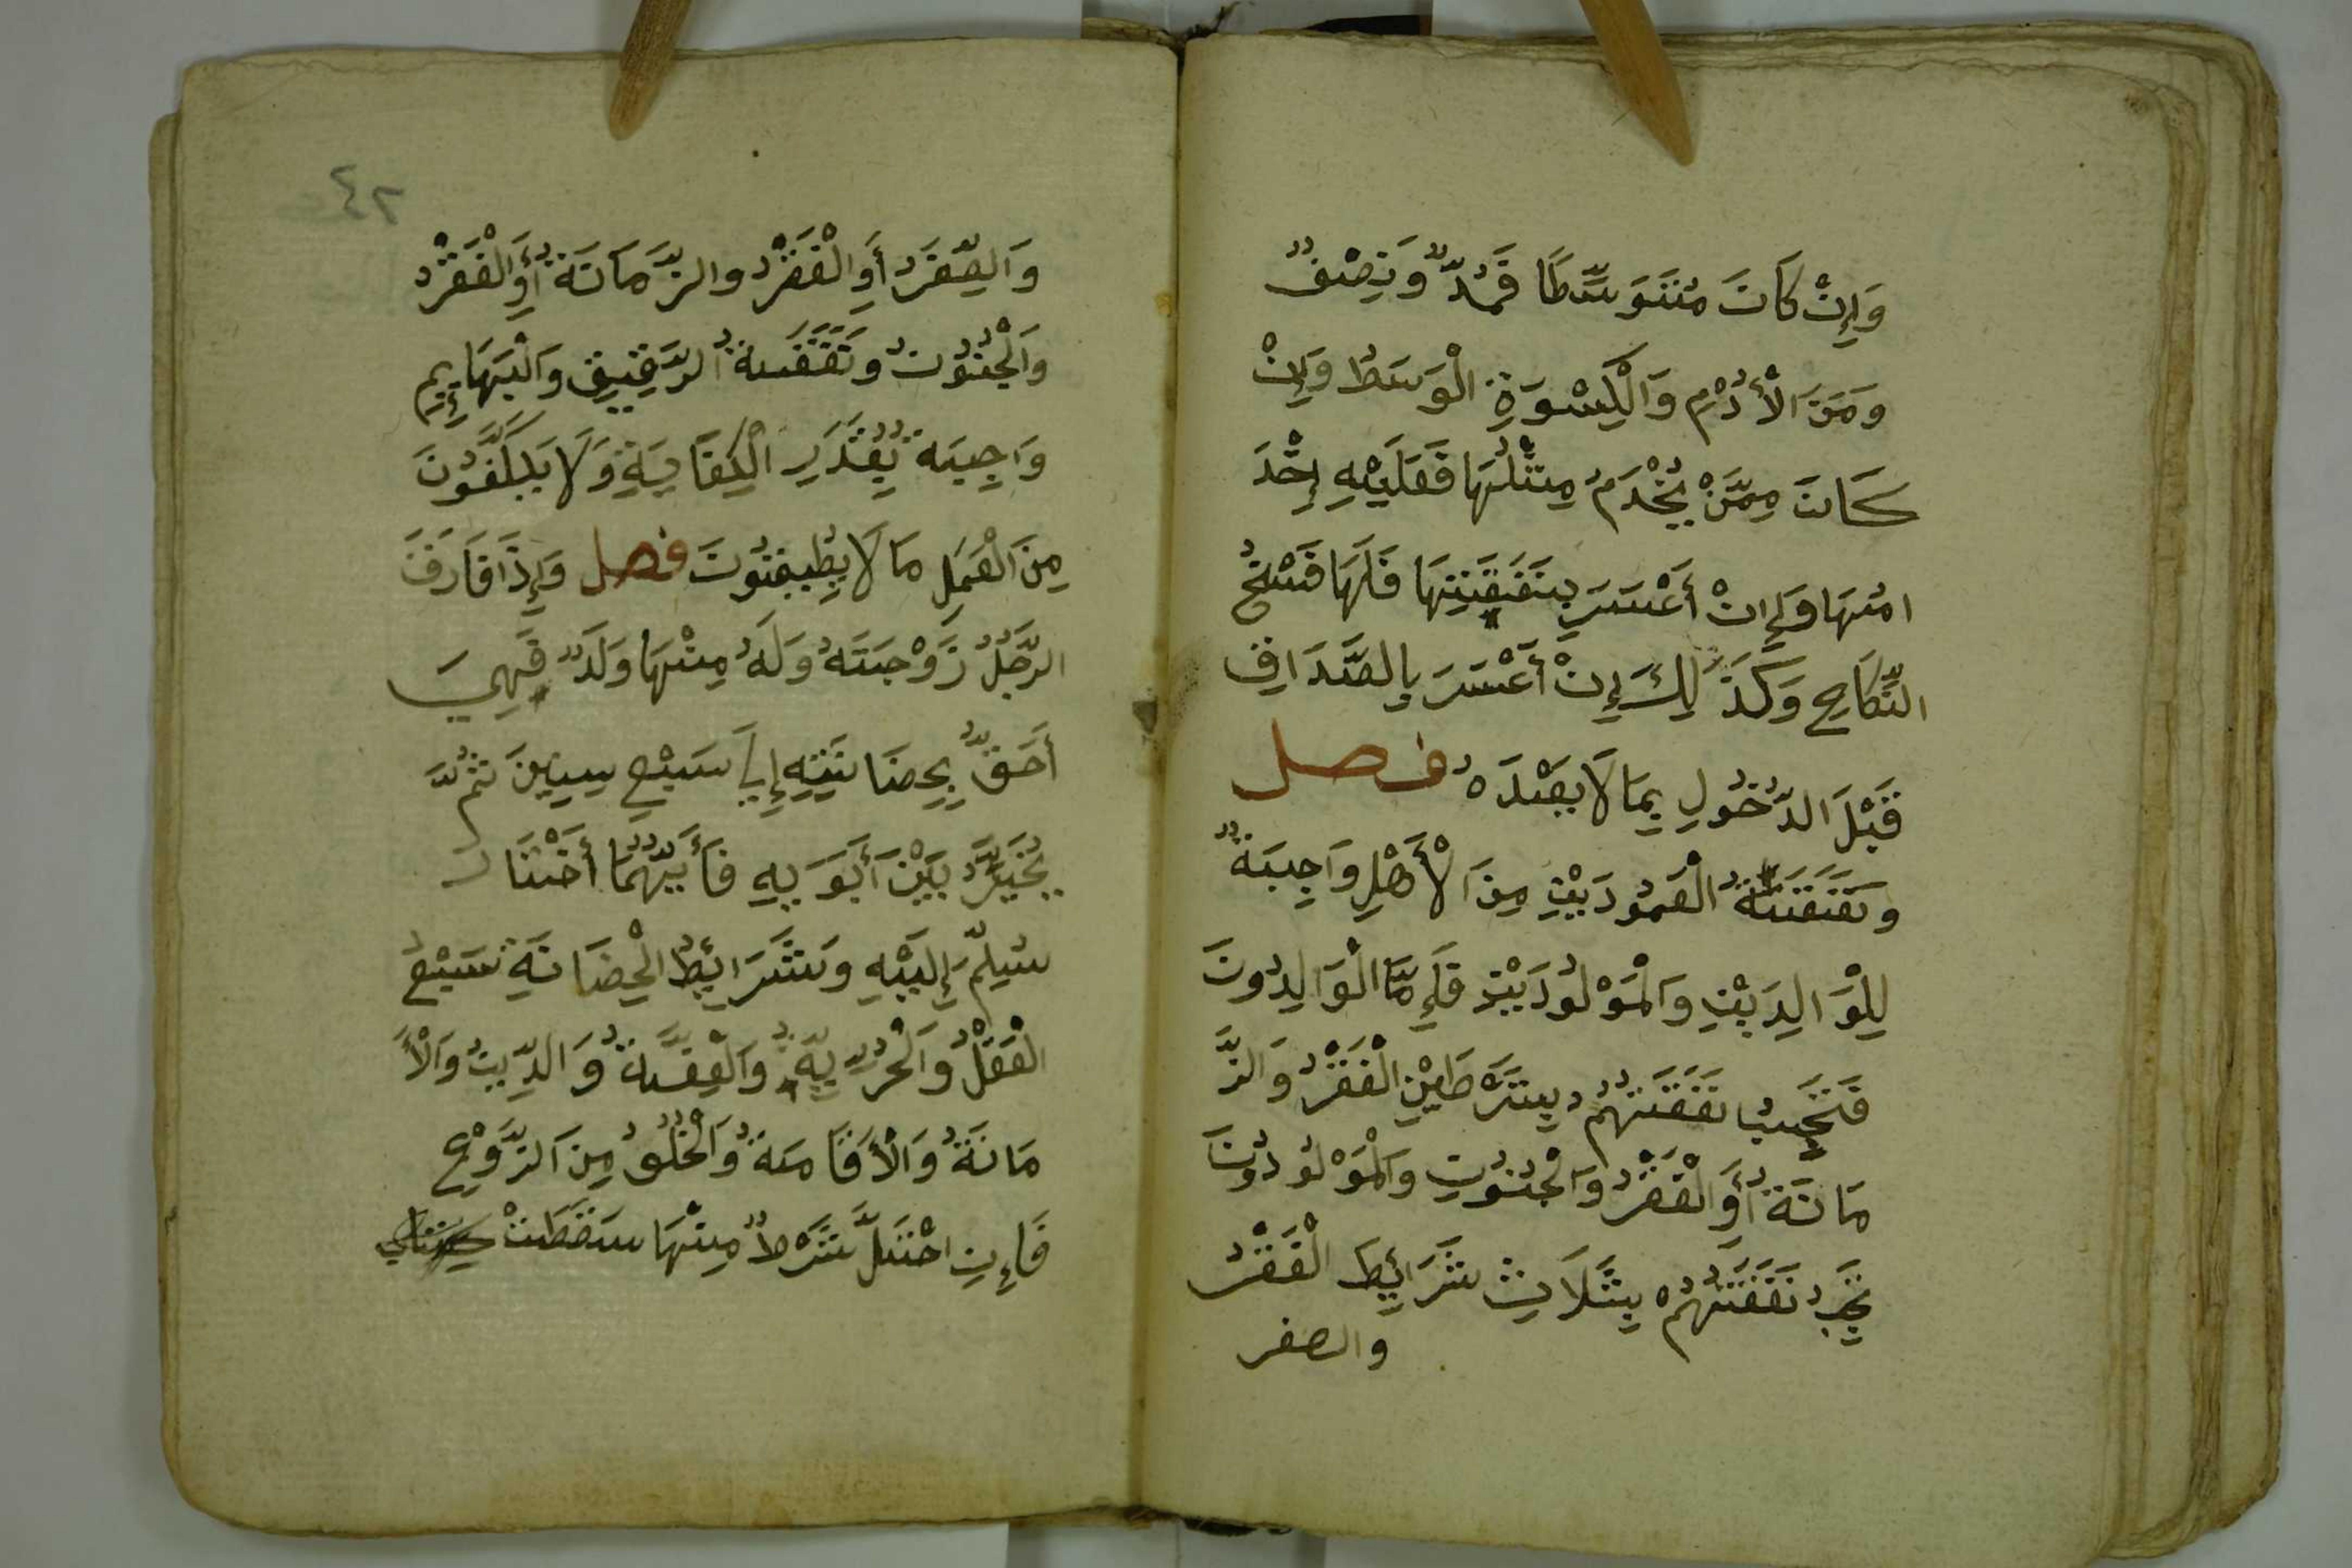 وَإِنْ كَانَ مُتَوَسِّطًا فَمُدٌّ وَنِصْفٌ
وَمِنَ الْأُدْمِ وَالْكِسْوَةِ الْوَسَطُ وَإِنْ
كَانَ مِمَّنْ يُخْدَمُ مِثْلُهَا فَعَلَيْهِ إِخْدَ
امُهَا وَإِنْ أَعْسَرَ بِنَفَقَتِهَا فَلَهَا فَسْخُ
النِّكَاحِ وَكَذَلِكَ إِنْ أَعْسَرَ بِالصَّدَاقِ
قَبْلَ الدُّخُولِ بِمَا لَا بَعْدَهُ فصل
وَنَفَقَةُ الْعَمُودَيْنِ مِنَ الْأَهْلِ وَاجِبَةٌ
لِلْوَالِدَيْنِ وَالْمَوْلُودَيْنِ فَإِمَّا الْوَالِدُونَ
فَتَجِبُ نَفَقَتُهُمْ بِشَرْطَيْنِ الْفَقْرُ وَالزَّ
مَانَةُ أَوِ الْفَقْرُ وَالْجُنُونِ وَالْمَوْلُودُونَ
تَجِبُ نَفَقَتُهُمْ بِثَلَاثِ شَرَائِطَ الْفَقْرُ
والصغر
٤٢
وَالصِّغَرُ أَوِ الْفَقْرُ والزَّمَانَةُ أَوِ الْفَقْرُ
وَالْجُنُونُ وَنَفَقَةُ الرَّقِيقِ وَالْبَهَايِمِ
وَاجِبَةٌ بِقَدَرِ الْكِفَايَةِ وَلَا يُكَلَّفُونَ
مِنَ الْعَمَلِ مَا لَا يُطِيقُونَ فصل وَإِذَا فَارَقَ
الرَّجُلُ زَوْجَتَهُ وَلَهُ مِنْهَا وَلَدٌ فَهِيَ
أَحَقُّ بِحِضَانَتِهِ إِلَى سَبْعِ سِنِينَ ثُمَّ
يُخَيَّرُ بَيْنَ أَبَوَيْهِ فَأَيُّهُمَا أَخْتَارَ
سُلِّمَ إِلَيْهِ وَشَرَائِطُ الْحِضَانَةِ سَبْعُ
الْعَقْلُ وَالْحُرِّيَّةِ وَالْعِفَّةُ وَالدِّينُ وَالْأَ
مَانَةُ وَالْأَقَامَةُ وَالْخُلُقُ مِنَ الزَّوْجِ
فَإِنِ اخْتَلَّ شَرْطٌ مِنْهَا سَقَطَتْ